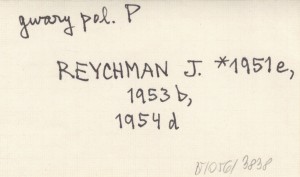 gwary pol. P
REYCHMAN J. *1951e,
1953b,
1954d
E/056/3838